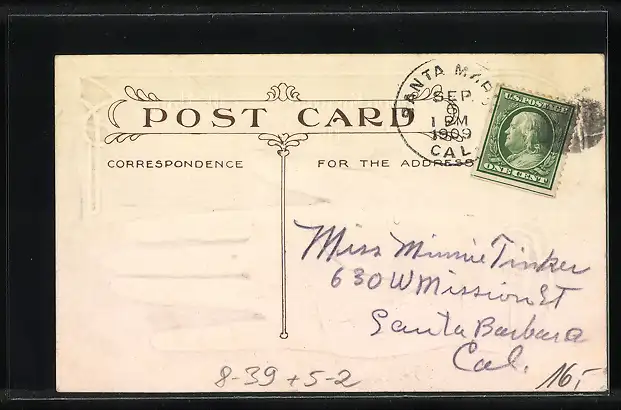 POST CARD
CORRESPONDENCE
FOR THE ADDRESS
SEP.
1 PM
1909
CAL.
U.S. POSTAGE
ONE CENT
Miss Minnie Tinker
630 W Mission St
Santa Barbara
Cal.
8-39 + 5-2
16,-